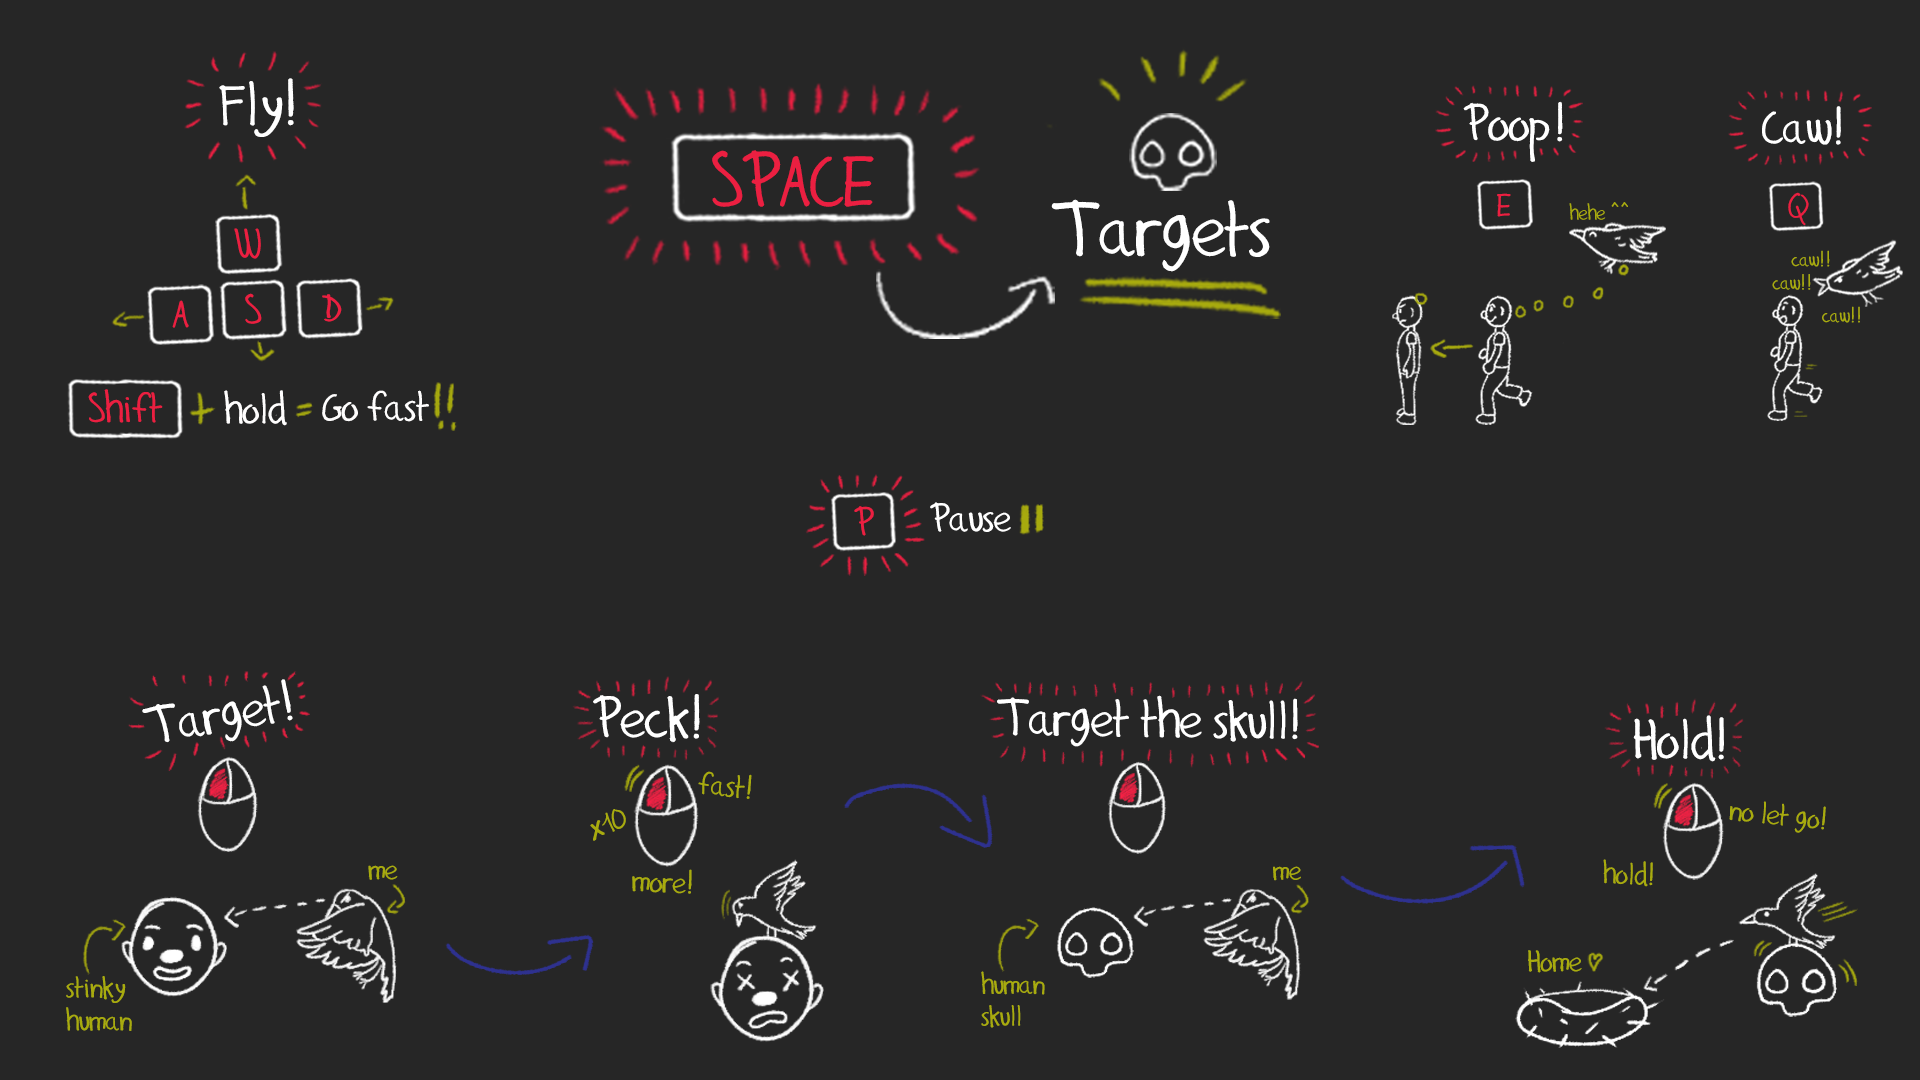 Fly!
W
A S D
Shift + hold = Go fast!!
SPACE
Targets
Poop!
E
hehe ^^
Caw!
Q
caw!!
caw!!
caw!!
P Pause
Target!
me
stinky
human
Peck!
fast!
x10
more!
Target the skull!
me
human
skull
Hold!
no let go!
hold!
Home ♡